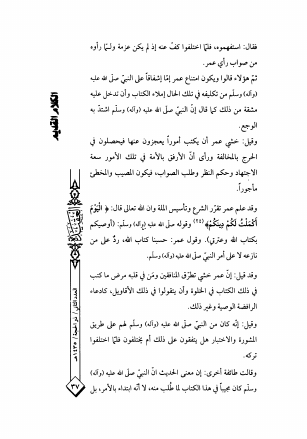 فقال: استفهموه، فلمّا اختلفوا كفّ عنه إذ لم يكن عزمة ولمّا رأوه
من صواب رأي عمر.
ثمّ هؤلاء قالوا ويكون امتناع عمر إمّا إشفاقاً على النبيّ صلّى الله عليه
(وآله) وسلّم من تكليفه في تلك الحال إملاء الكتاب وأن تدخل عليه
مشقة من ذلك كما قال إنّ النبيّ صلّى الله عليه (وآله) وسلّم اشتدّ به
الوجع.
وقيل: خشي عمر أن يكتب أموراً يعجزون عنها فيحصلون في
الحرج بالمخالفة ورأى أنّ الأرفق بالأمة في تلك الأمور سعة
الاجتهاد وحكم النظر وطلب الصواب، فيكون المصيب والمخطئ
مأجوراً.
وقد علم عمر تقرّر الشرع وتأسيس الملة وان الله تعالى قال: ﴿الْيَوْمَ
أَكْمَلْتُ لَكُمْ دِينَكُمْ﴾ (٢٤) وقوله صلّى الله عليه (وآله) وسلّم: (أوصيكم
بكتاب الله وعترتي). وقول عمر: حسبنا كتاب الله، ردٌّ على من
نازعه لا على أمر النبيّ صلّى الله عليه (وآله) وسلّم.
وقد قيل: إنّ عمر خشي تطرّق المنافقين ومَن في قلبه مرض ما كتب
في ذلك الكتاب في الخلوة وأن يتقولوا في ذلك الأقاويل، كادعاء
الرافضة الوصية وغير ذلك.
وقيل: إنّه كان من النبيّ صلّى الله عليه (وآله) وسلّم لهم على طريق
المشورة والاختبار هل يتفقون على ذلك أم يختلفون فلمّا اختلفوا
تركه.
وقالت طائفة أخرى: إن معنى الحديث انّ النبيّ صلّى الله عليه (وآله)
وسلّم كان مجيباً في هذا الكتاب لما طُلب منه، لا أنّه ابتداء بالأمر، بل
الكلام القديم
العقيدة
العدد الثاني / ذو الحجة / ١٤٣٥هـ
٣٧